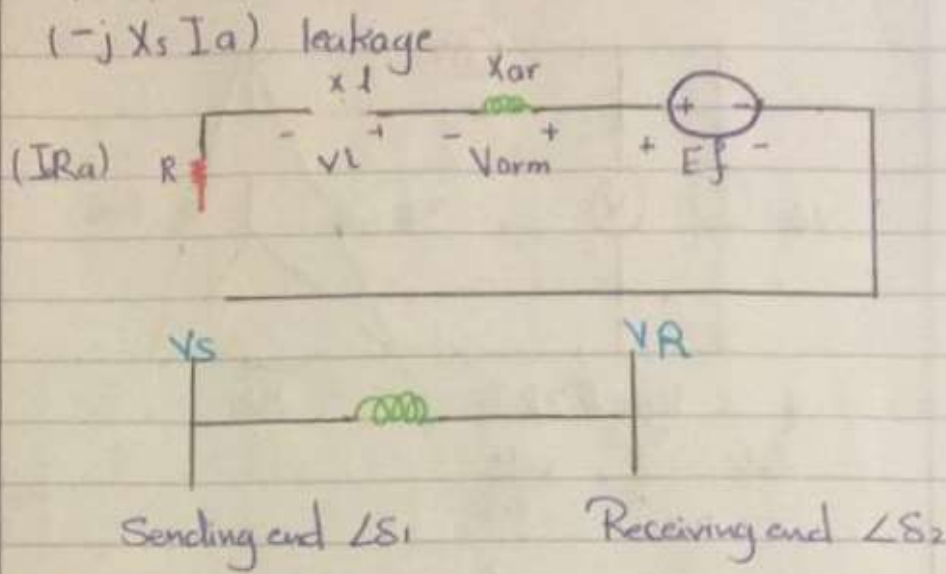 (-j Xs Ia) leakage
xl Xar
- + - + + -
(IRa) R Vl Varm + Ef -
VS VR
Sending end ∠δ1 Receiving end ∠δ2